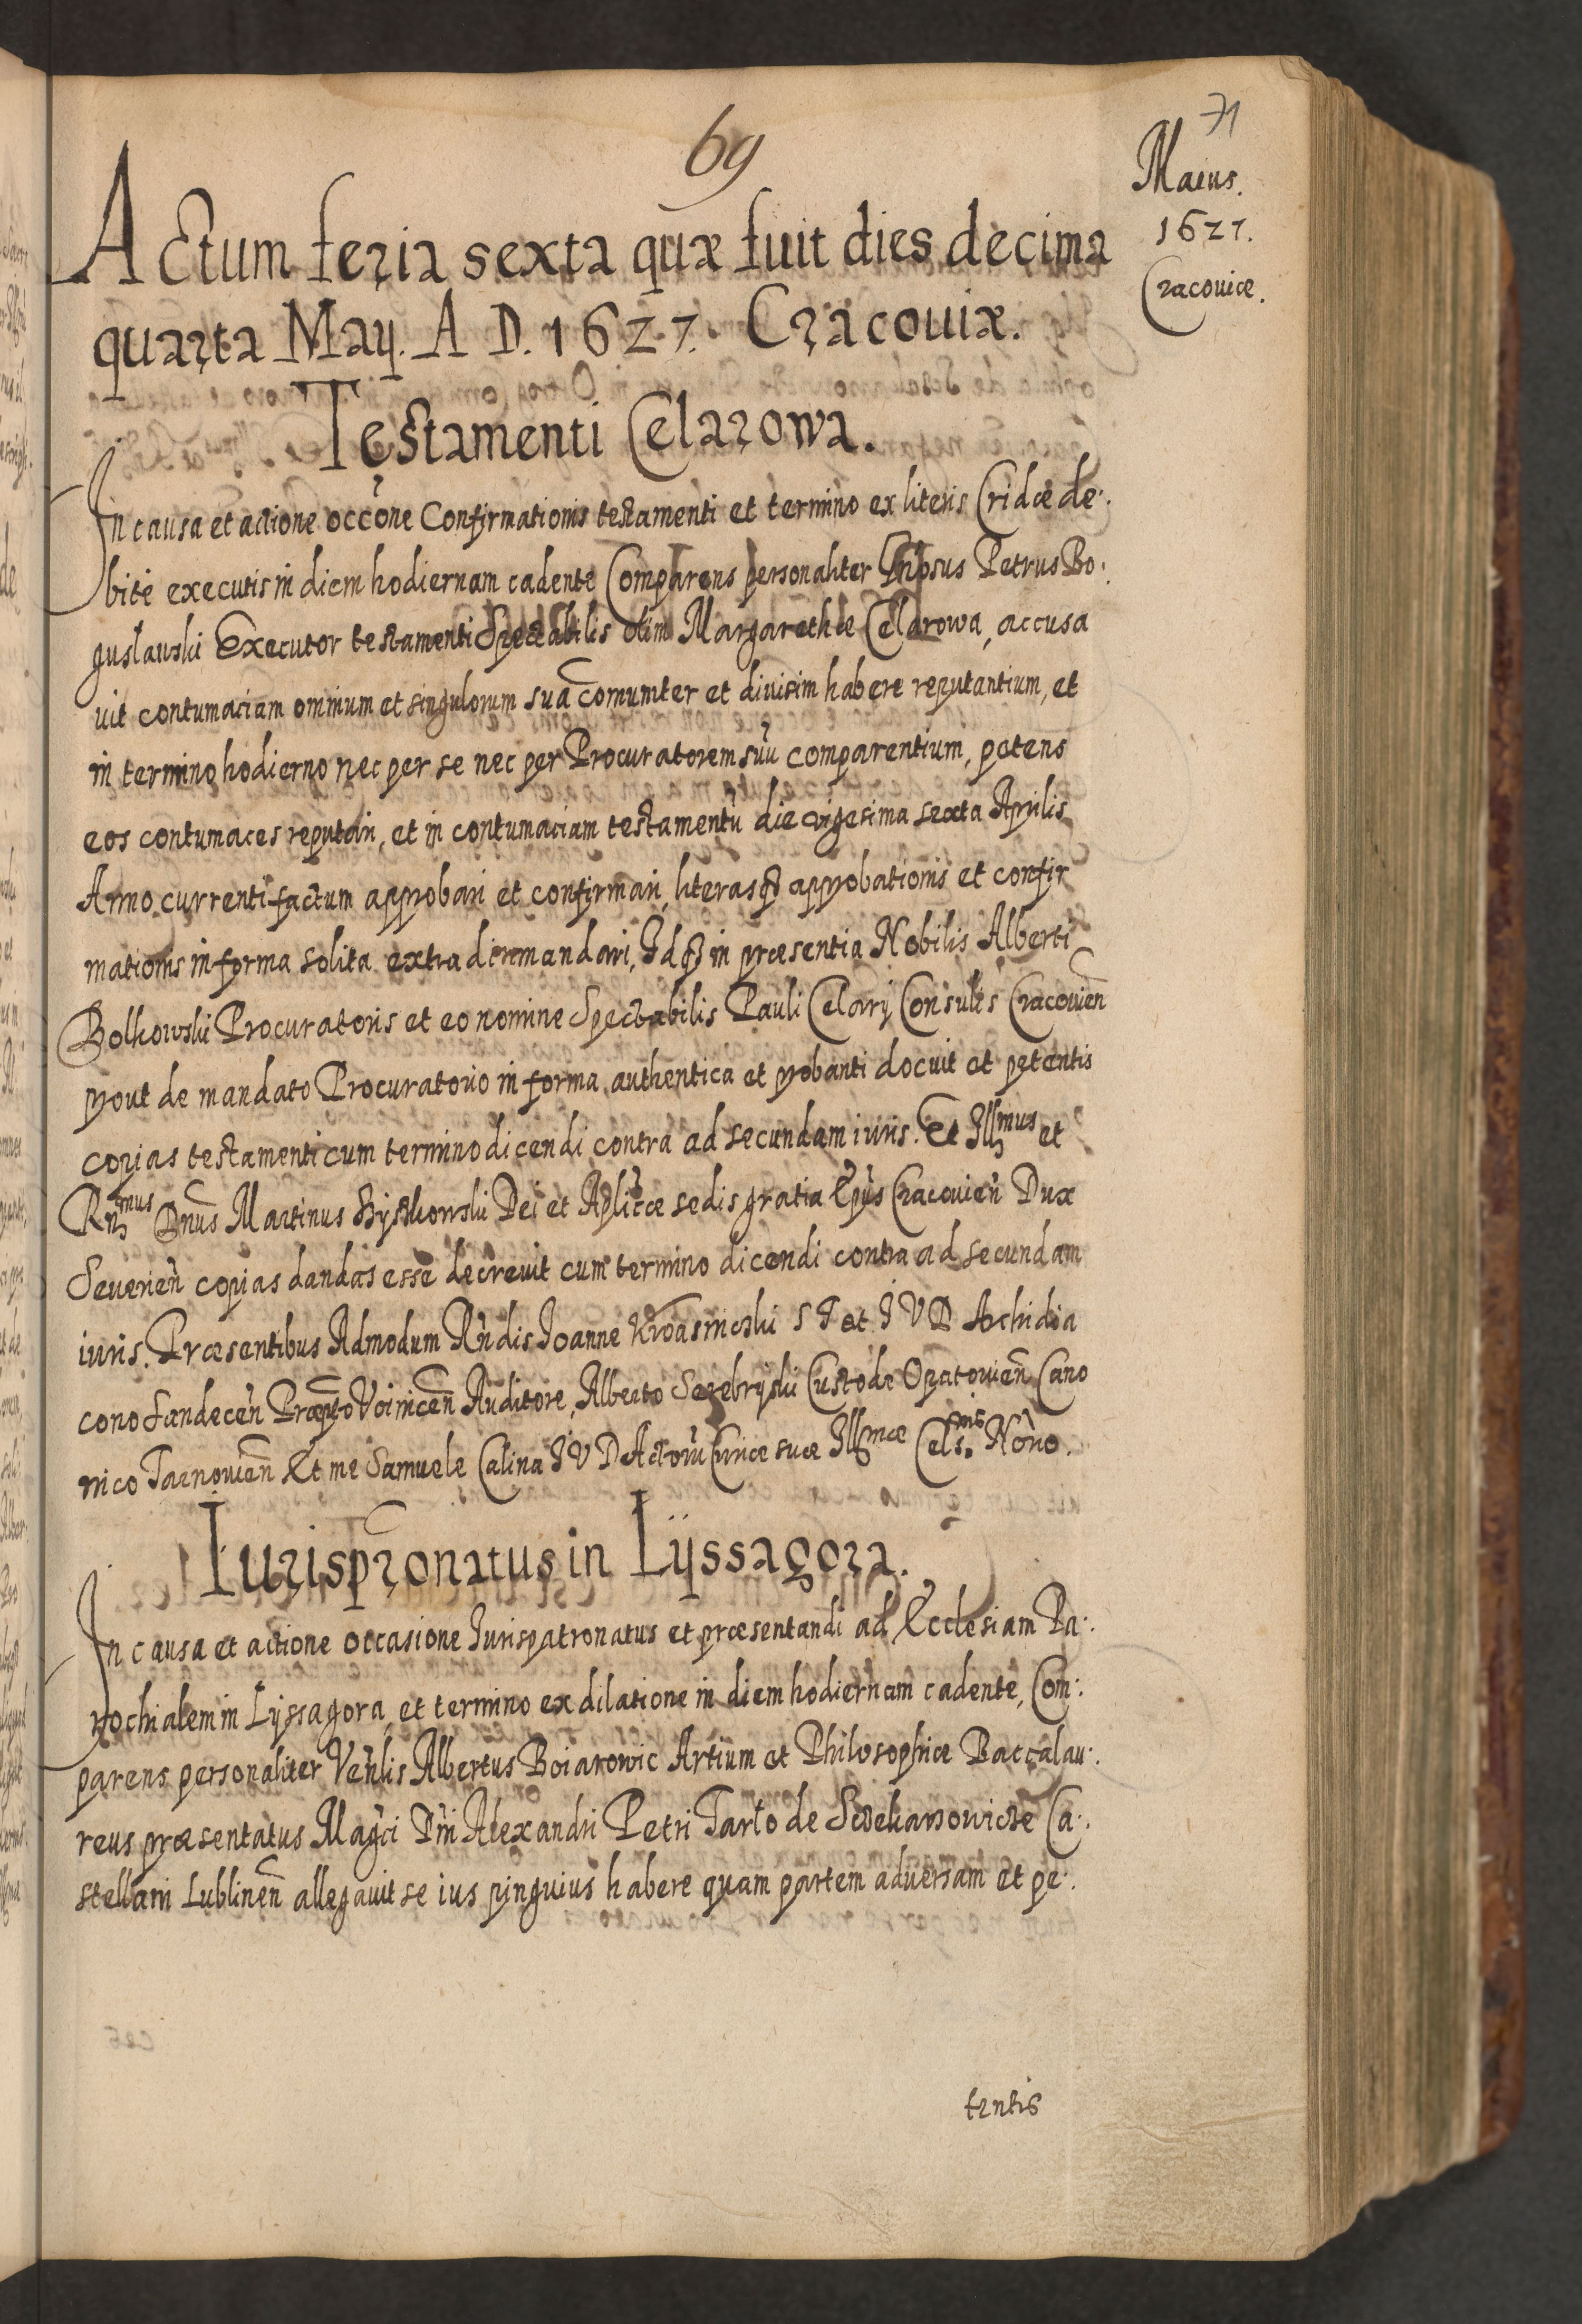 69
71
Maius.
1627.
Cracouiæ.
Actum feria sexta quæ fuit dies decima
quarta Maij. A D. 1627. Cracouiæ.
Testamenti Celarowa.
In causa et actione occ̃one Confirmationis testamenti et termino ex literis Cridæ de:
bite executis in diem hodiernam cadente Comparens personaliter Petrus Bo:
guslauski Executor testamenti Spectabilis olim Margarethæ Celarowa, accusa
uit contumaciam omnium et singulorum suã com̃uniter et diuisim habere reputantium, et
in termino hodierno nec per se nec per Procuratorem suũ comparentium, petens
eos contumaces reputari, et in contumaciam testamentũ die vigesima sexta Aprilis
Anno currenti factum approbari et confirmari, literasq̃ approbationis et confir
mationis in forma solita extradi et mandari, Idq̃ in præsentia Nobilis Alberti
Bolkowski Procuratoris et eo nomine Spectabilis Pauli Celarij Consulis Cracouien̄
prout de mandato Procuratorio in forma authentica et probanti docuit et petentis
copias testamenti cum termino dicendi contra ad secundam iuris. Et Illmus et
Rn̄dmus Dn̄us Martinus Szyszkowski Dei et Aplicæ sedis gratia Ep̃us Cracouien̄ Dux
Seuerien̄ copias dandas esse decreuit cum termino dicendi contra ad secundam
iuris. Præsentibus Admodum Rn̄dis Joanne S T et I V D Archidia
cono Sandecen̄ Præpto Voinicen̄ Auditore, Alberto Serebryski Custode Opatouien̄ Cano
nico Tarnouien̄ Et me Samuele Calina I V D Actorũ Curiæ suæ Illmæ Cels.nis Nõrio.
Iurisp̄ronatus in Lÿssagora.
In causa et actione occasione Iurispatronatus et præsentandi ad Ecclesiam Pa:
rochialem in Lyssagora, et termino ex dilatione in diem hodiernam cadente, Com:
parens personaliter Ven̄lis Albertus Boiarowic Artium et Philosophiæ Baccalau:
reus præsentatus Magc̃i Dn̄i Alexandri Petri Tarło de Sczekarzowicze Ca:
stellani Lublinen̄ allegauit se ius pinguius habere quam partem aduersam et pe:
tentis